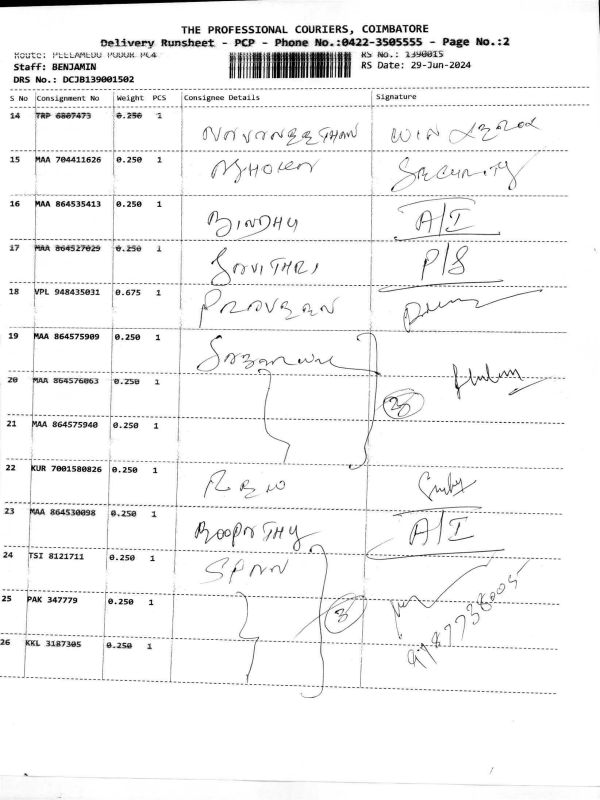 THE PROFESSIONAL COURIERS, COIMBATORE
Delivery Runsheet - PCP - Phone No.:0422-3505555 - Page No.:2
Route: PEELAMEDU PUDUR PC4 RS No.: 1390015
Staff: BENJAMIN RS Date: 29-Jun-2024
DRS No.: DCJB139001502
S No Consignment No Weight PCS Consignee Details Signature
14 TRP 6807473 0.250 1 NAVANEETHAN
15 MAA 704411626 0.250 1 ASHOKAN SECURITY
16 MAA 864535413 0.250 1 BINDHU A/I
17 MAA 864527029 0.250 1 SAVITHRI P/S
18 VPL 948435031 0.675 1 PRAVEEN
19 MAA 864575909 0.250 1
20 MAA 864576063 0.250 1 3
21 MAA 864575940 0.250 1
22 KUR 7001580826 0.250 1
23 MAA 864530098 0.250 1 BOOPATHY A/I
24 TSI 8121711 0.250 1 SPAN
25 PAK 347779 0.250 1 3
26 KKL 3187305 0.250 1